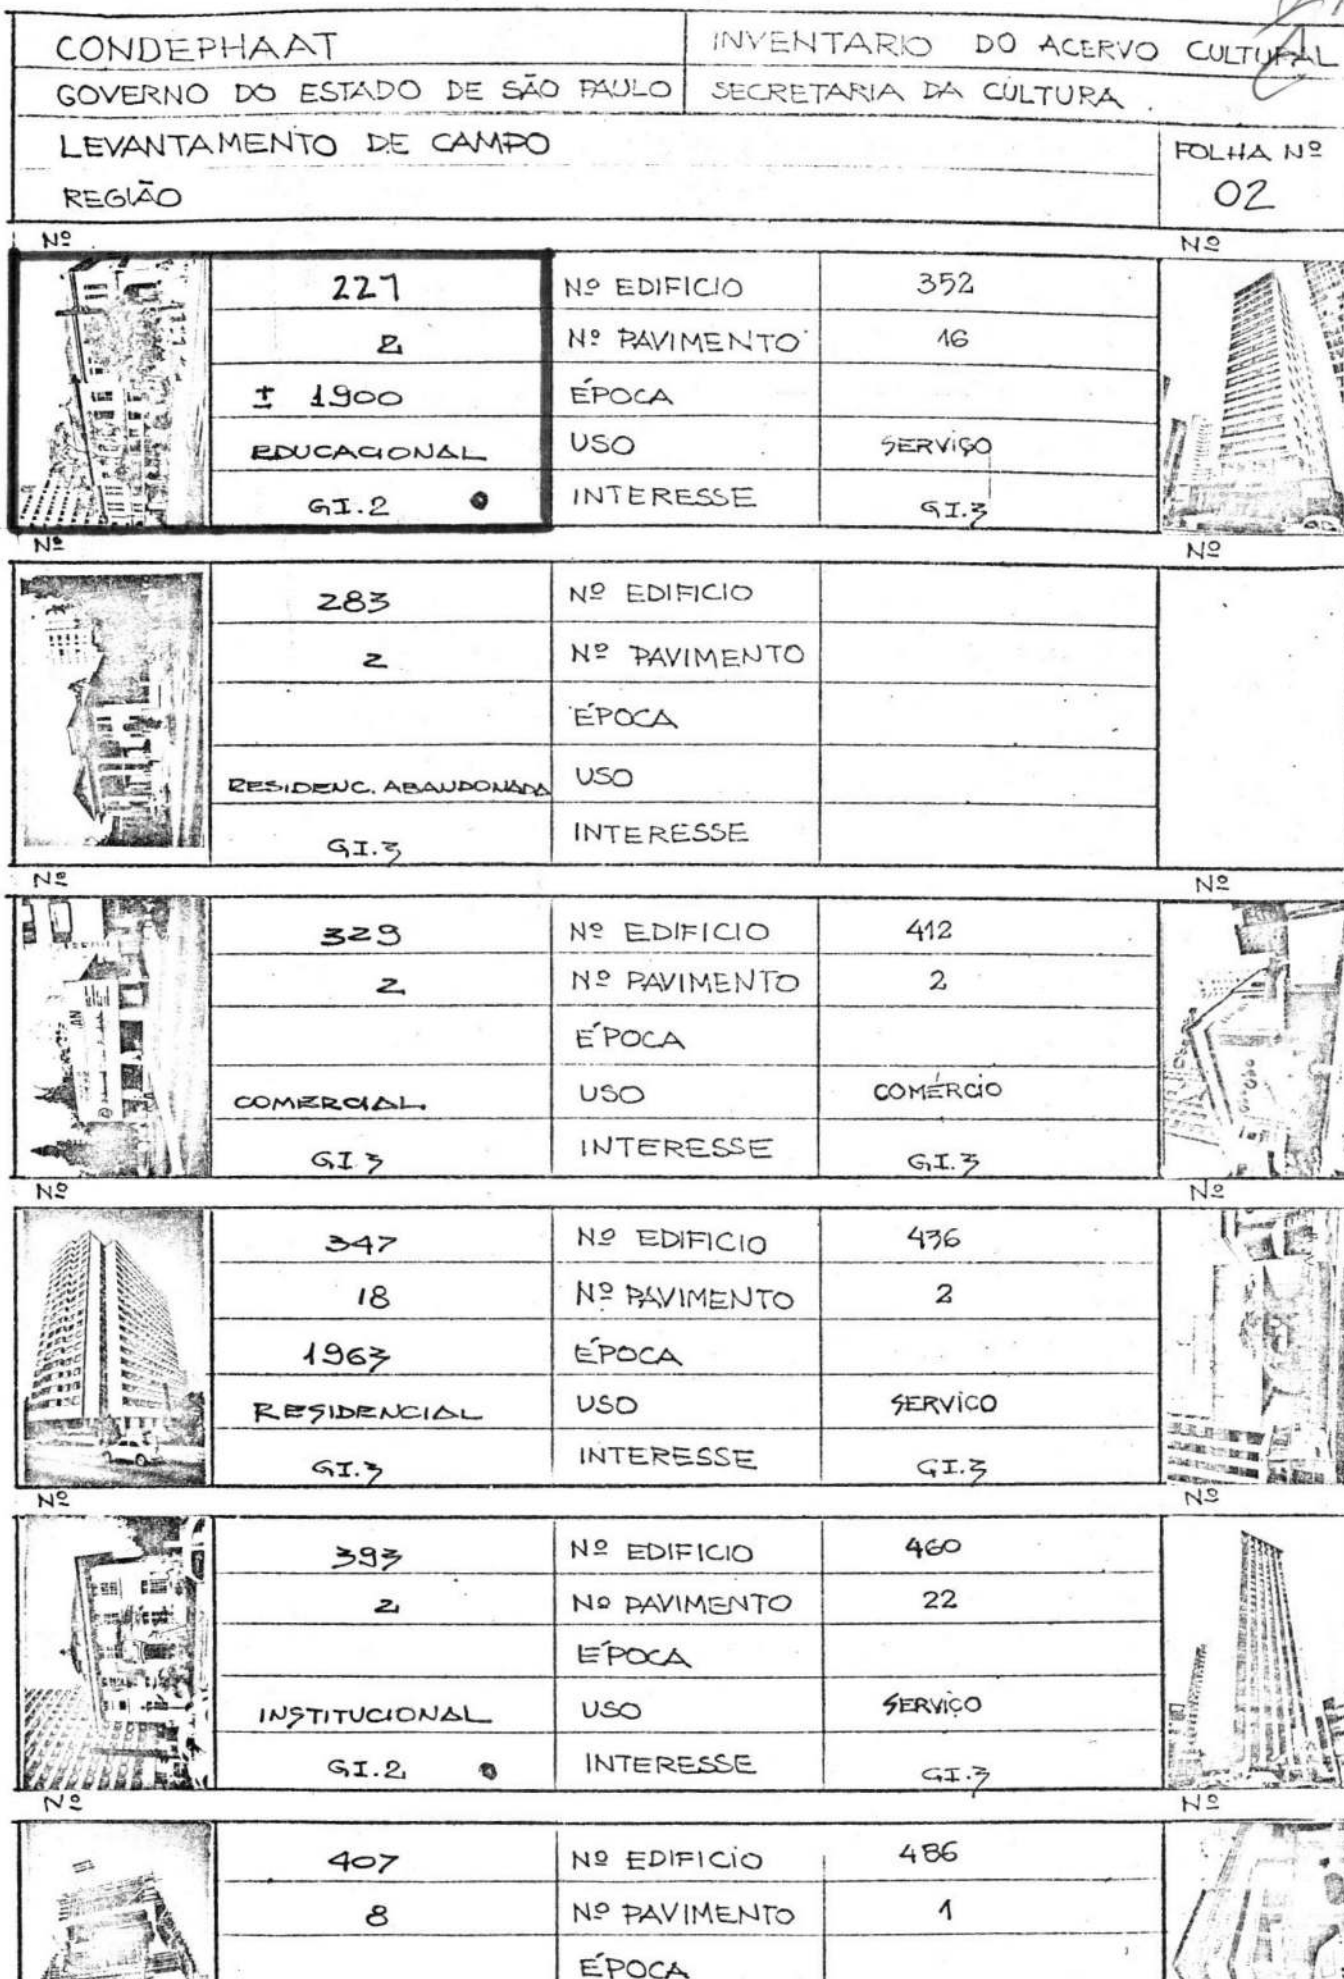 CONDEPHAAT INVENTARIO DO ACERVO CULTURAL
GOVERNO DO ESTADO DE SÃO PAULO SECRETARIA DA CULTURA
LEVANTAMENTO DE CAMPO FOLHA Nº
REGIÃO 02
Nº Nº
227 Nº EDIFICIO 352
2 Nº PAVIMENTO 16
± 1900 ÉPOCA
EDUCACIONAL USO SERVIÇO
GI.2 INTERESSE GI.3
Nº Nº
283 Nº EDIFICIO
2 Nº PAVIMENTO
ÉPOCA
RESIDENC. ABANDONADA USO
GI.3 INTERESSE
Nº Nº
329 Nº EDIFICIO 412
2 Nº PAVIMENTO 2
ÉPOCA
COMERCIAL USO COMÉRCIO
GI 3 INTERESSE GI.3
Nº Nº
347 Nº EDIFICIO 436
18 Nº PAVIMENTO 2
1963 ÉPOCA
RESIDENCIAL USO SERVICO
GI.3 INTERESSE GI.3
Nº Nº
393 Nº EDIFICIO 460
2 Nº PAVIMENTO 22
ÉPOCA
INSTITUCIONAL USO SERVIÇO
GI.2 INTERESSE GI.3
Nº Nº
407 Nº EDIFICIO 486
8 Nº PAVIMENTO 1
ÉPOCA